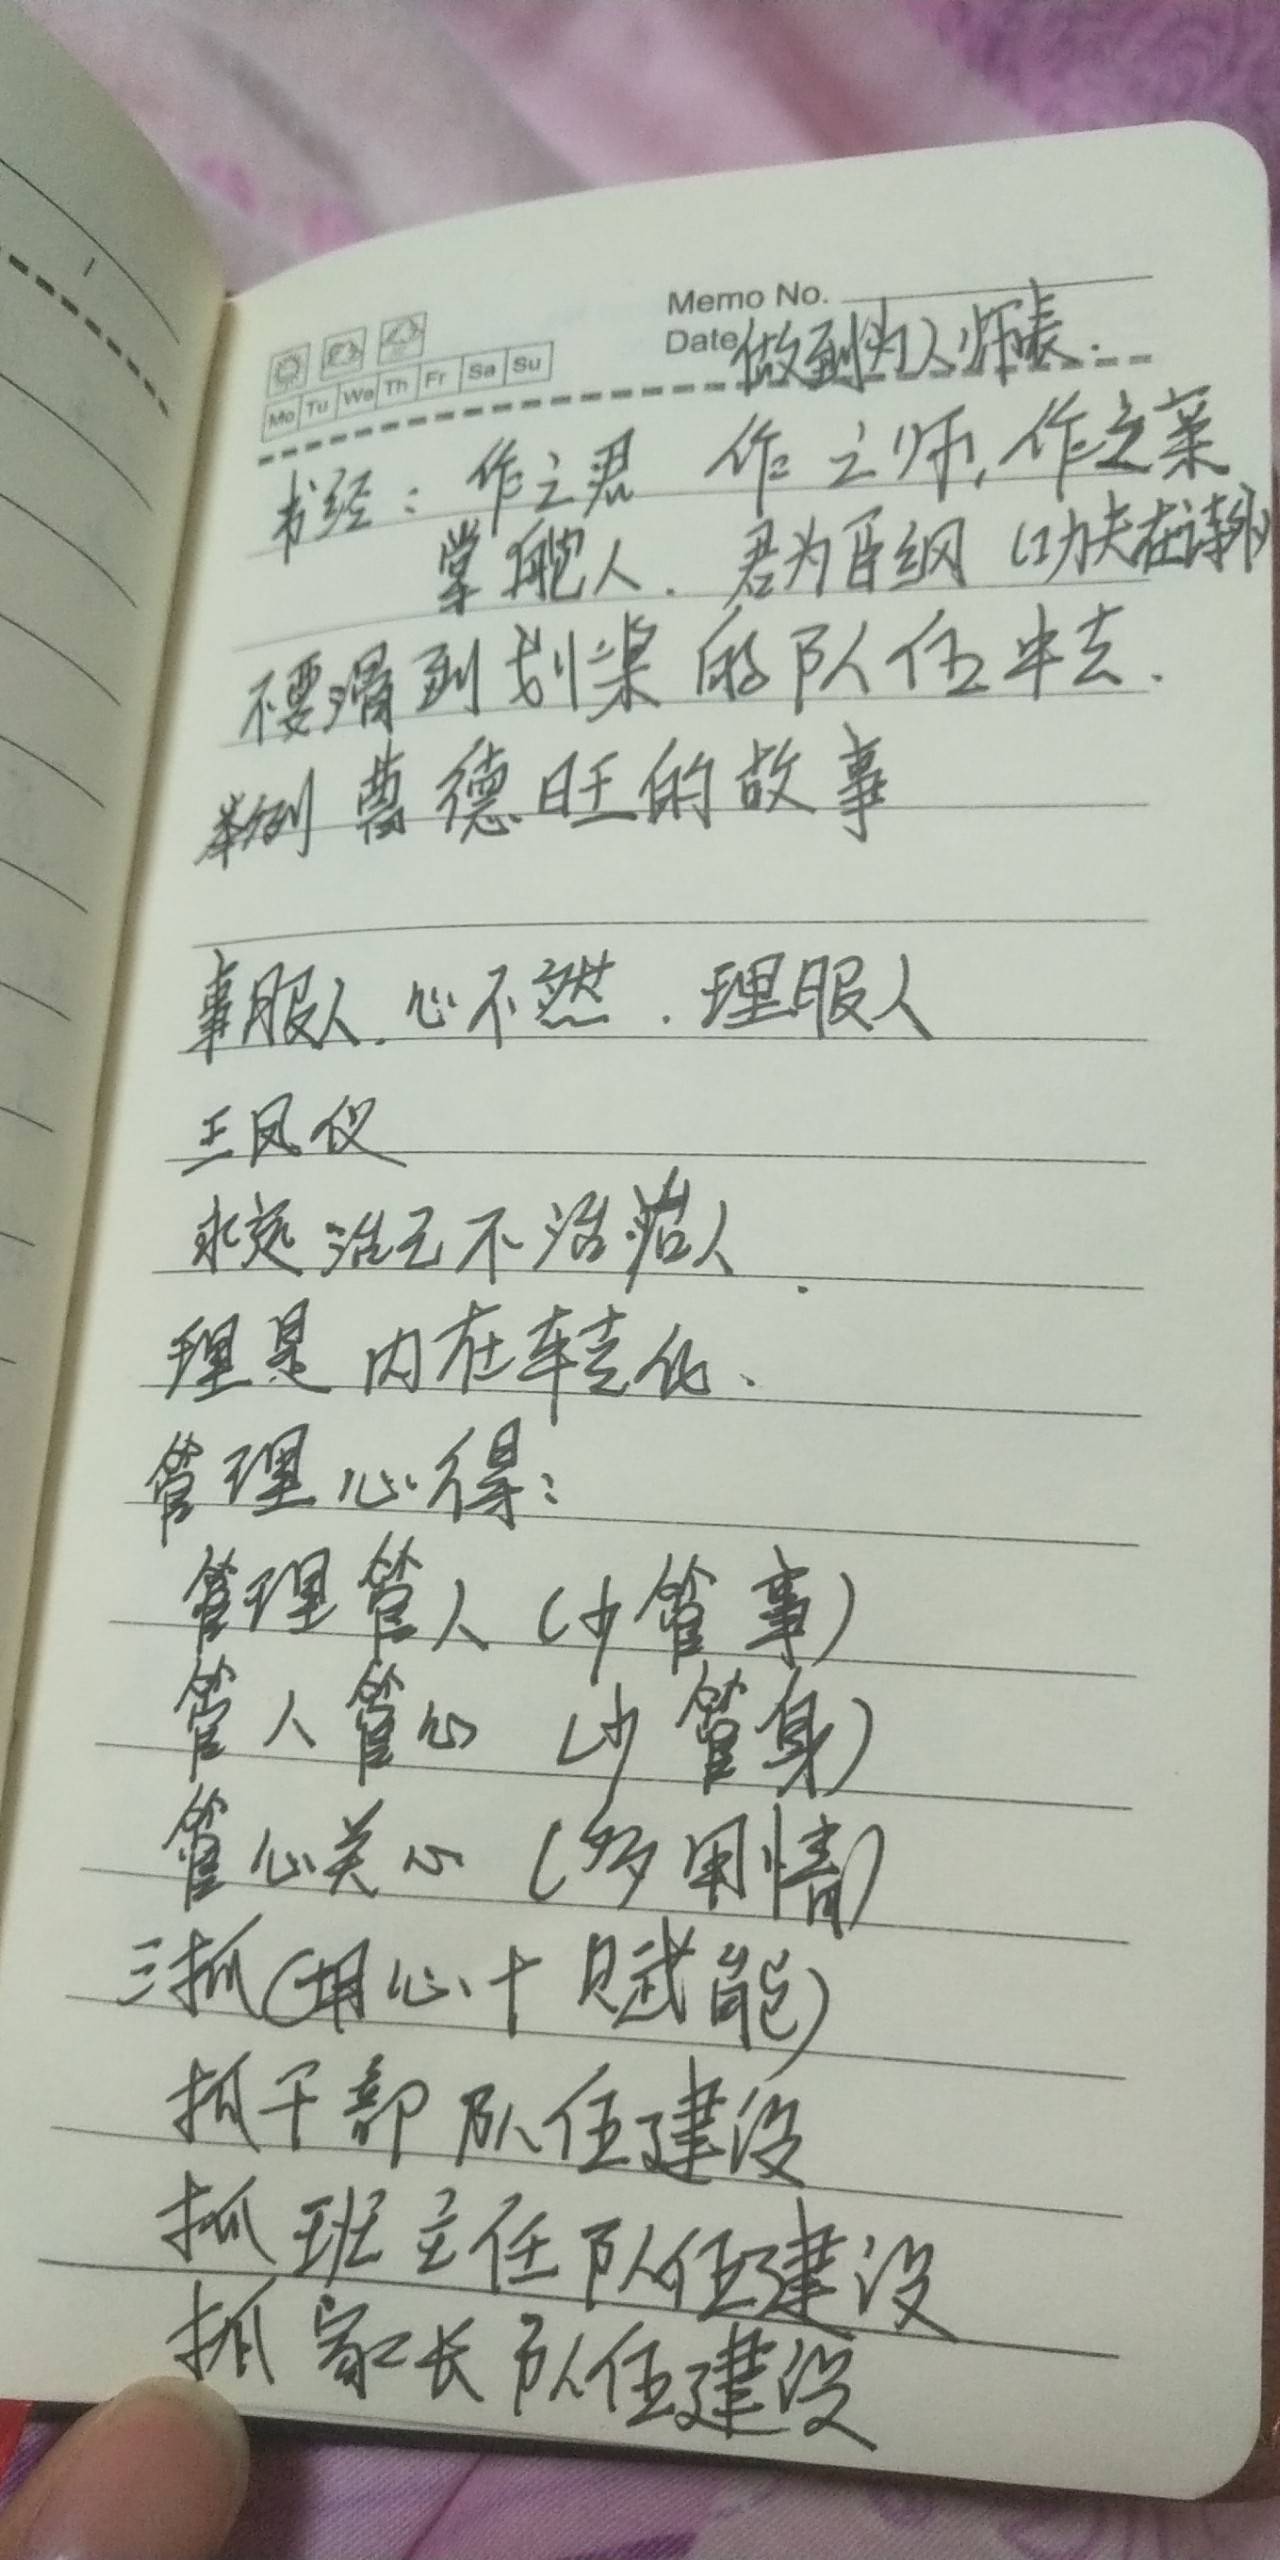 Memo No.
Date 做到为人师表.
Mo Tu We Th Fr Sa Su
书经: 作之君 作之师, 作之亲
掌舵人. 君为臣纲 (功夫在诗外)
不要滑到划桨的队伍中去.
举例 曹德旺的故事
事服人. 心不然. 理服人
王凤仪
永远治己不治人
理是内在转化、
管理心得:
管理管人(少管事)
管人管心 (少管身)
管心关心 (多用情)
三抓(用心+赋能)
抓干部队伍建设
抓班主任队伍建设
抓家长队伍建设